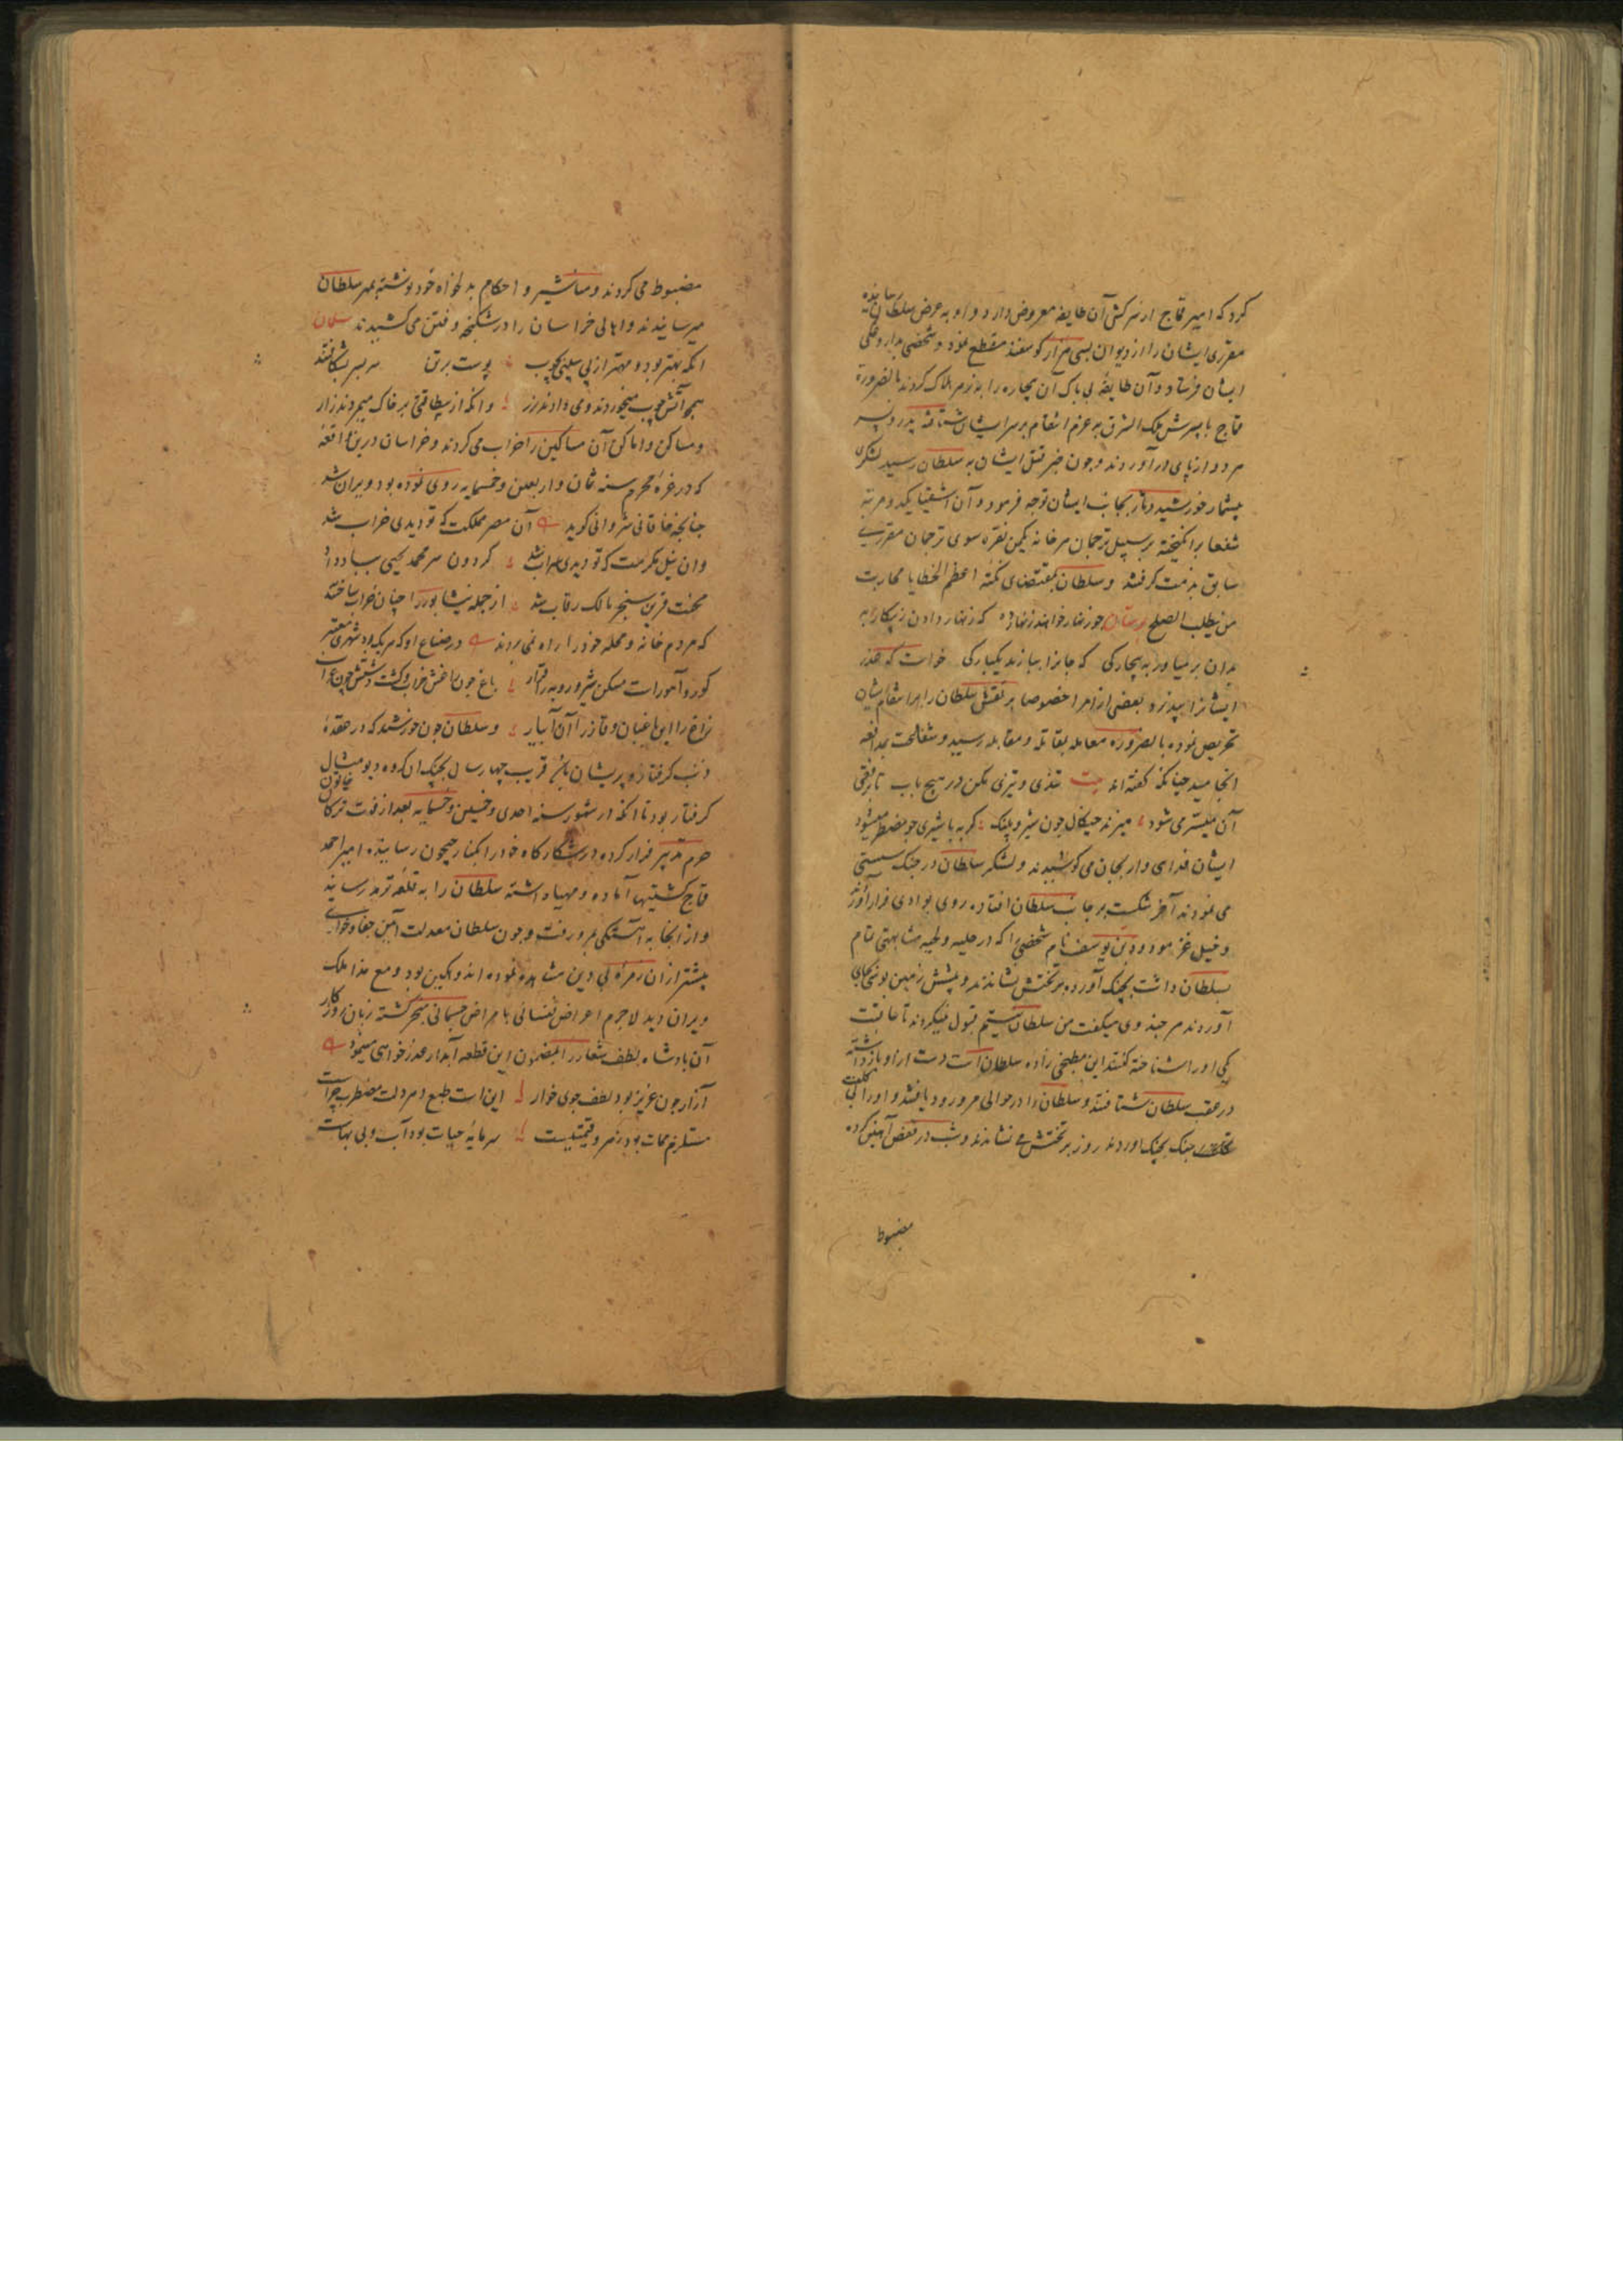 کرد که امیر قماج از سرکشی آن طایفه معروض دارد و او به عرض سلطان رسانیده
مقرری ایشان را از دیوان بسی هزار گوسفند مقطع نمود و شخصی بداروغگی
ایشان فرستاد و آن طایفهٔ بی باک آن بیچاره را بزهر هلاک کردند بالضرورة
قماج با پسرش ملک الشرق به عزم انتقام بر سر ایشان شتافته پدر و پسر
هر دو از پای در آوردند و چون خبر قتل ایشان به سلطان رسید لشکر
بیشمار بجانب ایشان توجه فرمود و آن اشقیا یکدو مرتبه
شفعا برانگیخته بر سبیل ترجمان هر خانه یکمن نقره سوی ترجمان مقرری
سابق بذمت گرفتند و سلطان بمقتضای نکتهٔ اعظم الخطایا محاربت
من یطلب الصلح چو زنهار خواهند زنهار ده که زنهار دادن ز پیکار به
بدان بر میاور به بیچارگی که جانرا ببازند یکبارگی خواست که عذر
ایشانرا بپذیرد بعضی از امرا خصوصا سلطان را بر انتقام ایشان
تحریص نموده بالضروره معامله بمقاتله و مقابله رسید و بمدافعه
انجامید چنانکه گفته‌اند بیت تندی و تیزی مکن در هیچ باب تا برفقی
آن میسر می شود میزند چنگال چون شیر و پلنگ گربه با شیری چو مضطر میشود
ایشان فدایی وار بجان می کوشیدند و لشکر سلطان در جنگ سستی
می نمودند آخر شکست بر جانب سلطان افتاده روی بوادی فرار آوردند
و خیل غز مودود بن یوسف نام شخصی را که در حلیه و لحیه مشابهتی تمام
بسلطان داشت بچنگ آورده بر تختش نشاندند و پیشش زمین بوس بجای
آوردند هر چند وی میگفت من سلطان نیستم قبول نمیکردند تا عاقبت
یکی او را شناخته گفتند این مطبخی زاده سلطان است دست از او باز داشته
در عقب سلطان شتافتند و سلطان را در حوالی مرورود یافتند و او را بی
جنگ بچنگ آوردند روز بر تختش می نشاندند و شب در قفص آهنین کرده
مضبوط
مضبوط می کردند و مناشیر و احکام بدلخواه خود نوشته بمهر سلطان
میرسانیدند و اهالی خراسان را در شکنجه و فتن می کشیدند
آنکه بهتر بود و مهتر از پی سیلی چوب پوست بر سر بسر بشکافتند
همچو آتش چوب میخوردند و می دادند زر وانکه از بیطاقتی بر خاک میمردند زار
و مساکن و اماکن آن مساکین را خراب می کردند و خراسان درین واقعه
که در غرهٔ محرم سنه ثمان و اربعین و خمسمایه روی نموده بود ویران شد
چنانچه خاقانی شروانی گوید آن مصر مملکت که تو دیدی خراب شد
وان نیل مکرمت که تو دیدی سراب شد گردون سر محمد یحیی بباد داد
محنت قرین سنجر مالک رقاب شد از جمله نیشابور را چنان خراب ساختند
که مردم خانه و محله خود را راه نمی بردند در ضیاع او که هر یک بود شهری معتبر
کور و آهو راست مسکن شیر و روبه را قرار باغ چون راغش خراب و کشت و دشتش چون سراب
زاغ را این باغبان و قاز را آن آبیار و سلطان چون خورشید که در عقدهٔ
ذنب گرفتار و پریشان باشد قریب چهار سال بچنگ آن گروه دیو مثال
گرفتار بود تا آنکه در شهور سنه احدی و خمسین و خمسمایه بعد از فوت ترکان خاتون
حرم تدبیر فرار کرده در شکارگاه خود را بکنار جیحون رسانیده امیر احمد
قماج کشتیها آماده و مهیا داشته سلطان را به قلعه ترمذ رسانید
و از آنجا به آهستگی بمرو رفت و چون سلطان معدلت آیین جفا و خواری
بیشتر از آن زمرهٔ بی دین مشاهده نموده اندوهگین بود و مع هذا ملک
ویران دید لاجرم اعراض نفسانی بامراض جسمانی منجر گشته زبان روزگار
آن پادشاه لطف شعار را بمضمون این قطعه آبدار عذر خواهی مینمود
آزار چون عزیز بود لطف جوی خوار این است طبع دهر دلت مضطرب چراست
مستلزم ممات بود زهر و قیمتیست سرمایهٔ حیات بود آب و بی بهاست